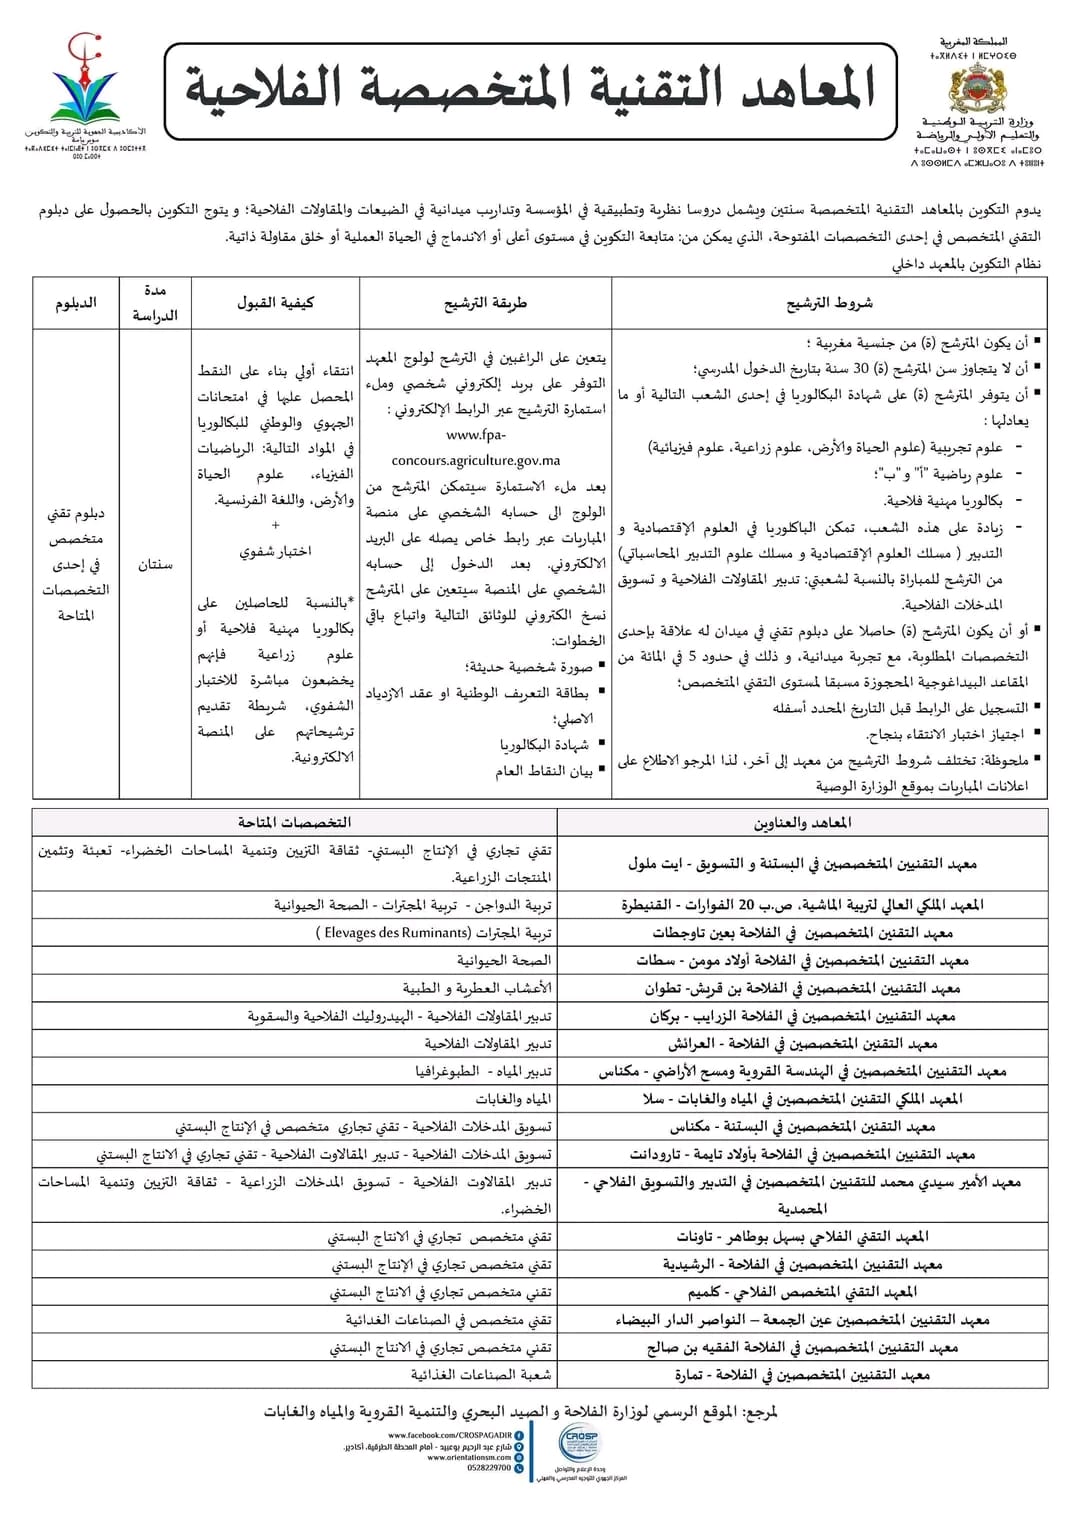 المملكة المغربية
ⵜⴰⴳⵍⴷⵉⵜ ⵏ ⵍⵎⵖⵔⵉⴱ
وزارة التربية الوطنية
والتعليم الأولي والرياضة
المعاهد التقنية المتخصصة الفلاحية
الأكاديمية الجهوية للتربية والتكوين
سوس ماسة
يدوم التكوين بالمعاهد التقنية المتخصصة سنتين ويشمل دروسا نظرية وتطبيقية في المؤسسة وتداريب ميدانية في الضيعات والمقاولات الفلاحية؛ و يتوج التكوين بالحصول على دبلوم
التقني المتخصص في إحدى التخصصات المفتوحة، الذي يمكن من: متابعة التكوين في مستوى أعلى أو الاندماج في الحياة العملية أو خلق مقاولة ذاتية.
نظام التكوين بالمعهد داخلي
شروط الترشيح
▪ أن يكون المترشح (ة) من جنسية مغربية ؛
▪ أن لا يتجاوز سن المترشح (ة) 30 سنة بتاريخ الدخول المدرسي؛
▪ أن يتوفر المترشح (ة) على شهادة البكالوريا في إحدى الشعب التالية أو ما
يعادلها :
- علوم تجريبية (علوم الحياة والأرض، علوم زراعية، علوم فيزيائية)
- علوم رياضية "أ" و "ب"؛
- بكالوريا مهنية فلاحية.
- زيادة على هذه الشعب، تمكن الباكلوريا في العلوم الإقتصادية و
التدبير ( مسلك العلوم الإقتصادية و مسلك علوم التدبير المحاسباتي)
من الترشح للمباراة بالنسبة لشعبتي: تدبير المقاولات الفلاحية و تسويق
المدخلات الفلاحية.
▪ أو أن يكون المترشح (ة) حاصلا على دبلوم تقني في ميدان له علاقة بإحدى
التخصصات المطلوبة، مع تجربة ميدانية، و ذلك في حدود 5 في المائة من
المقاعد البيداغوجية المحجوزة مسبقا لمستوى التقني المتخصص؛
▪ التسجيل على الرابط قبل التاريخ المحدد أسفله
▪ اجتياز اختبار الانتقاء بنجاح.
▪ ملحوظة: تختلف شروط الترشيح من معهد إلى آخر، لذا المرجو الاطلاع على
اعلانات المباريات بموقع الوزارة الوصية
طريقة الترشيح
يتعين على الراغبين في الترشح لولوج المعهد
التوفر على بريد إلكتروني شخصي وملء
استمارة الترشيح عبر الرابط الإلكتروني :
www.fpa-
concours.agriculture.gov.ma
بعد ملء الاستمارة سيتمكن المترشح من
الولوج الى حسابه الشخصي على منصة
المباريات عبر رابط خاص يصله على البريد
الالكتروني. بعد الدخول إلى حسابه
الشخصي على المنصة سيتعين على المترشح
نسخ الكتروني للوثائق التالية واتباع باقي
الخطوات:
▪ صورة شخصية حديثة؛
▪ بطاقة التعريف الوطنية او عقد الازدياد
الاصلي؛
▪ شهادة البكالوريا
▪ بيان النقاط العام
كيفية القبول
انتقاء أولي بناء على النقط
المحصل عليها في امتحانات
الجهوي والوطني للبكالوريا
في المواد التالية: الرياضيات
الفيزياء، علوم الحياة
والأرض، واللغة الفرنسية.
+
اختبار شفوي
*بالنسبة للحاصلين على
بكالوريا مهنية فلاحية أو
علوم زراعية فإنهم
يخضعون مباشرة للاختبار
الشفوي، شريطة تقديم
ترشيحاتهم على المنصة
الالكترونية.
مدة
الدراسة
سنتان
الدبلوم
دبلوم تقني
متخصص
في إحدى
التخصصات
المتاحة
المعاهد والعناوين التخصصات المتاحة
معهد التقنيين المتخصصين في البستنة و التسويق - ايت ملول
تقني تجاري في الإنتاج البستني- ثقافة التزيين وتنمية المساحات الخضراء- تعبئة وتثمين
المنتجات الزراعية.
المعهد الملكي العالي لتربية الماشية، ص.ب 20 الفوارات - القنيطرة تربية الدواجن - تربية المجترات - الصحة الحيوانية
معهد التقنين المتخصصين في الفلاحة بعين تاوجطات تربية المجترات (Elevages des Ruminants )
معهد التقنيين المتخصصين في الفلاحة أولاد مومن - سطات الصحة الحيوانية
معهد التقنيين المتخصصين في الفلاحة بن قريش- تطوان الأعشاب العطرية و الطبية
معهد التقنيين المتخصصين في الفلاحة الزرايب - بركان تدبير المقاولات الفلاحية - الهيدروليك الفلاحية والسقوية
معهد التقنين المتخصصين في الفلاحة - العرائش تدبير المقاولات الفلاحية
معهد التقنيين المتخصصين في الهندسة القروية ومسح الأراضي - مكناس تدبير المياه - الطبوغرافيا
المعهد الملكي التقنين المتخصصين في المياه والغابات - سلا المياه والغابات
معهد التقنين المتخصصين في البستنة - مكناس تسويق المدخلات الفلاحية - تقني تجاري متخصص في الإنتاج البستني
معهد التقنيين المتخصصين في الفلاحة بأولاد تايمة - تارودانت تسويق المدخلات الفلاحية - تدبير المقالاوت الفلاحية - تقني تجاري في الانتاج البستني
معهد الأمير سيدي محمد للتقنيين المتخصصين في التدبير والتسويق الفلاحي -
المحمدية
تدبير المقالاوت الفلاحية - تسويق المدخلات الزراعية - ثقافة التزيين وتنمية المساحات
الخضراء.
المعهد التقني الفلاحي بسهل بوطاهر - تاونات تقني متخصص تجاري في الانتاج البستني
معهد التقنيين المتخصصين في الفلاحة - الرشيدية تقني متخصص تجاري في الإنتاج البستني
المعهد التقني المتخصص الفلاحي - كلميم تقني متخصص تجاري في الانتاج البستني
معهد التقنيين المتخصصين عين الجمعة – النواصر الدار البيضاء تقني متخصص في الصناعات الغدائية
معهد التقنيين المتخصصين في الفلاحة الفقيه بن صالح تقني متخصص تجاري في الانتاج البستني
معهد التقنيين المتخصصين في الفلاحة - تمارة شعبة الصناعات الغذائية
لمرجع: الموقع الرسمي لوزارة الفلاحة و الصيد البحري والتنمية القروية والمياه والغابات
CROSP
وحدة الإعلام والتواصل
المركز الجهوي للتوجيه المدرسي والمهني
www.facebook.com/CROSPAGADIR
شارع عبد الرحيم بوعبيد - أمام المحطة الطرقية، أكادير.
www.orientationsm.com
0528229700